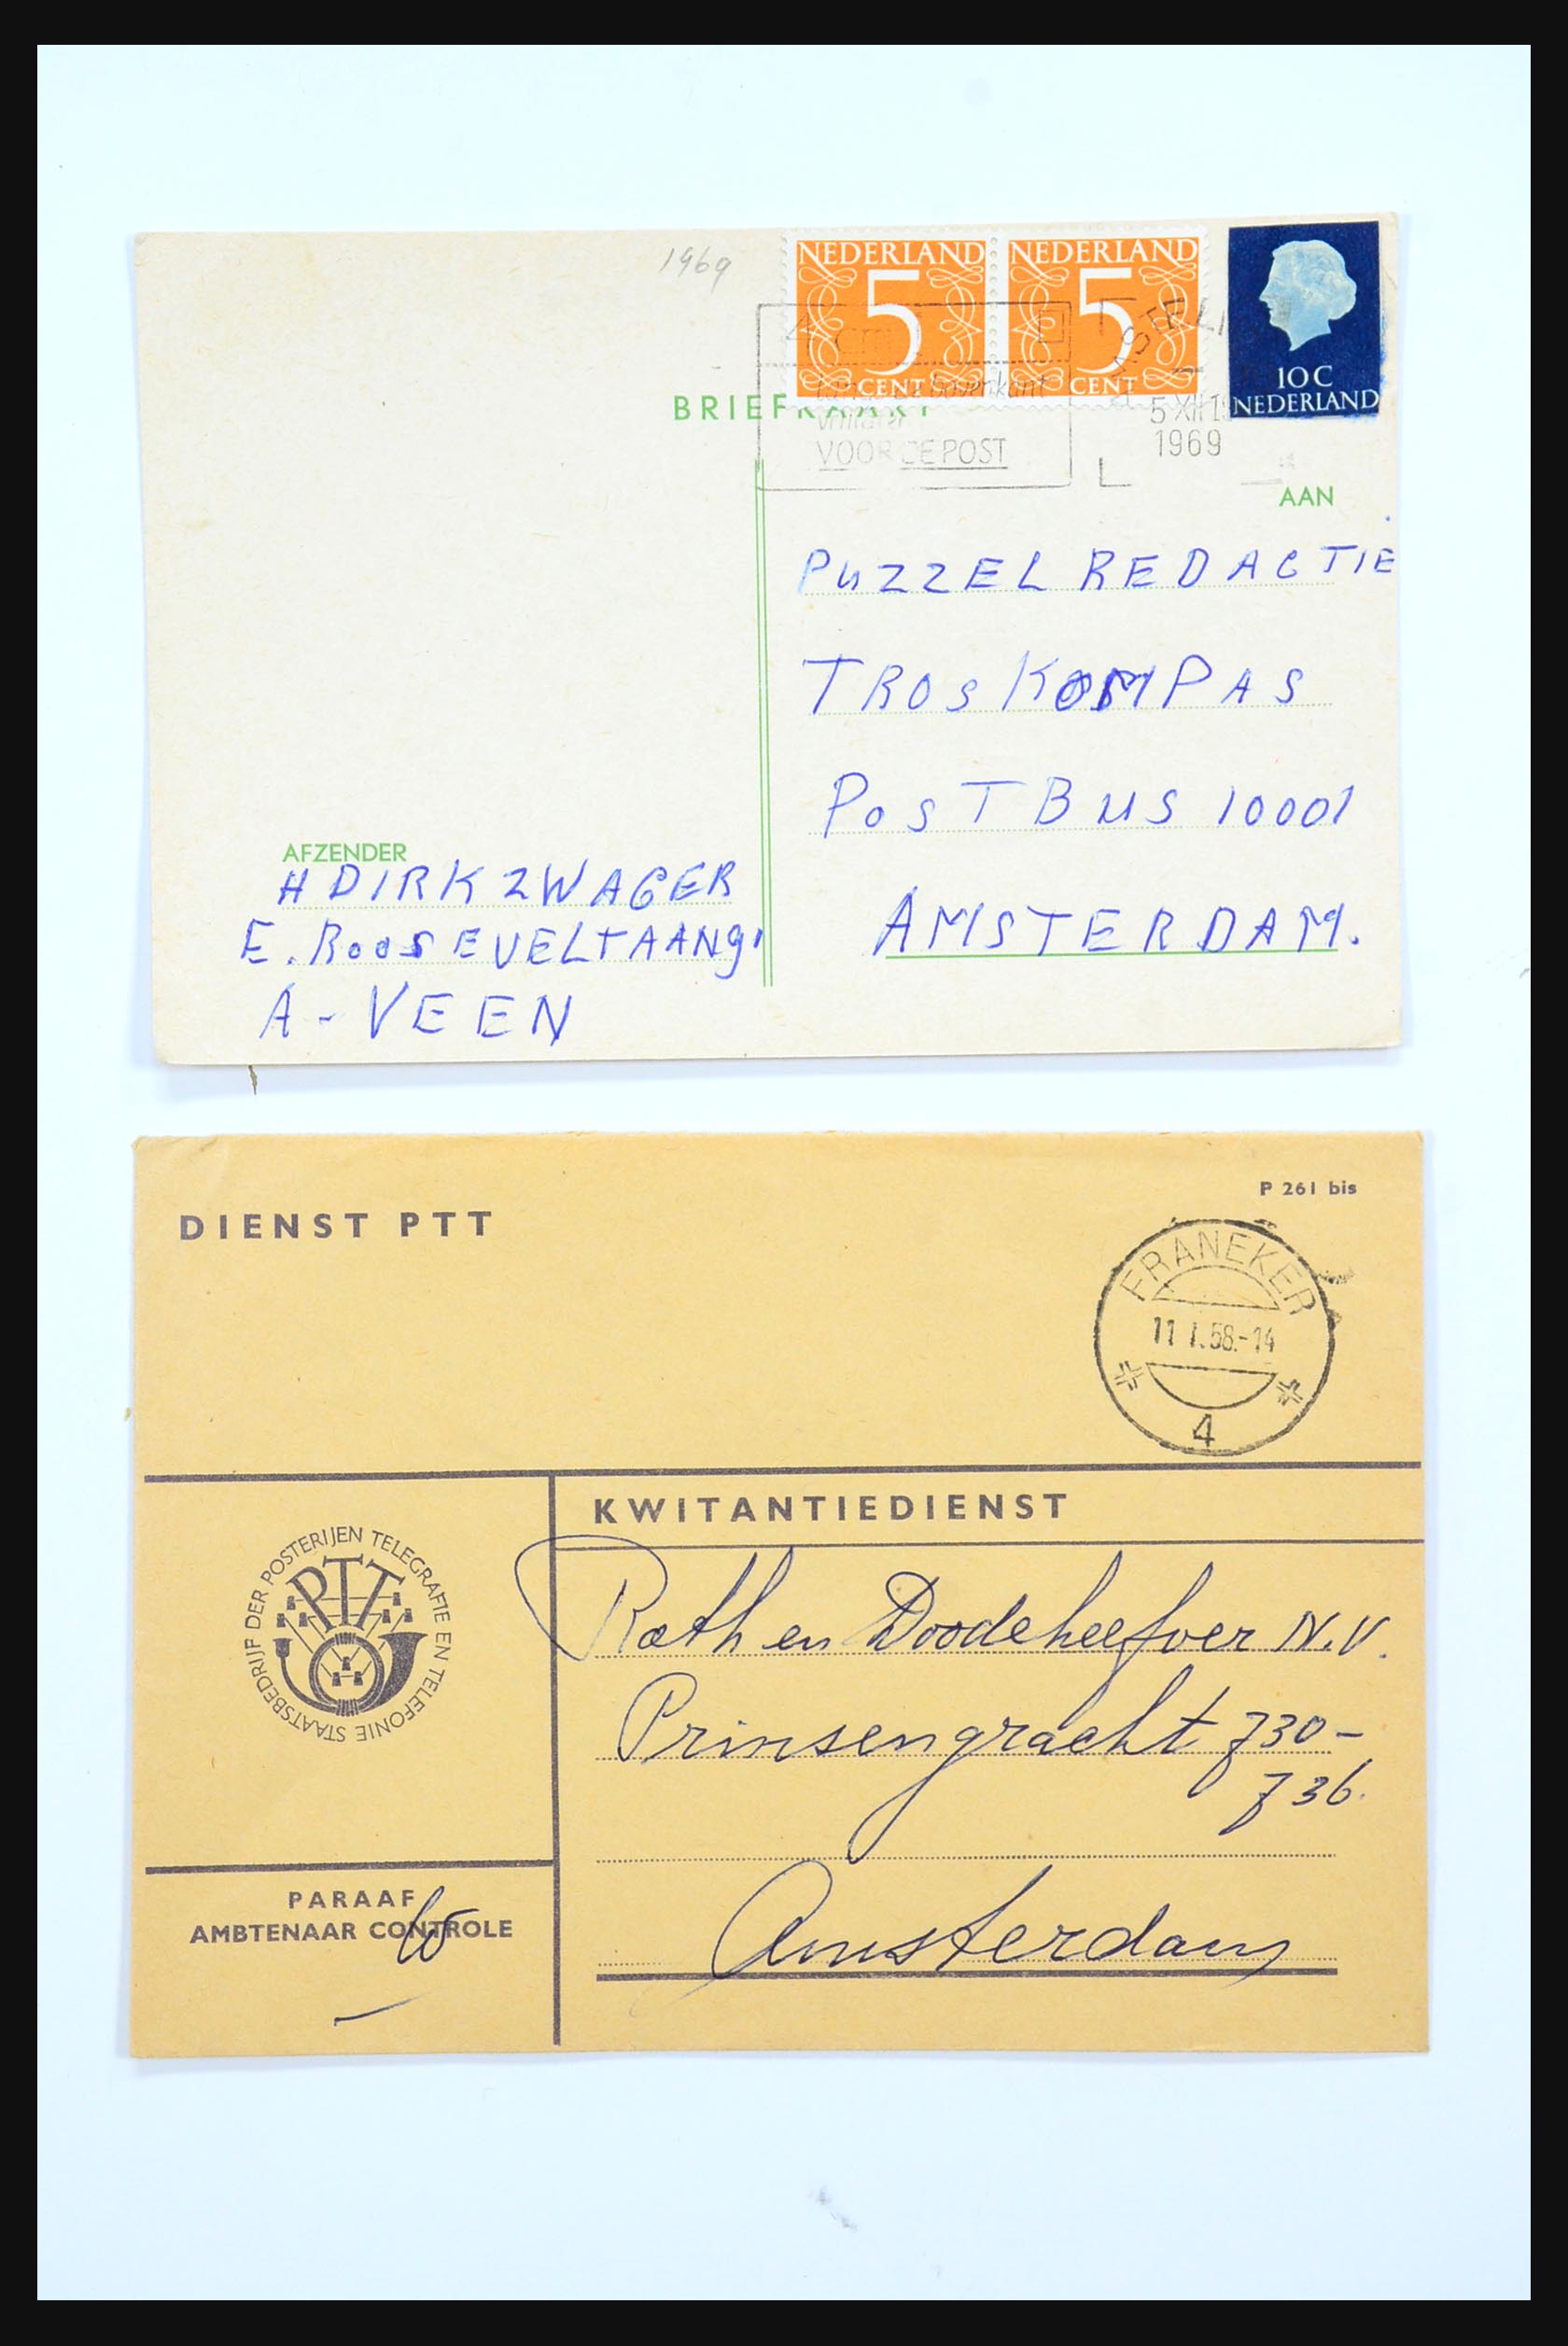 1969
NEDERLAND NEDERLAND
5 5
CENT CENT
10 C
NEDERLAND
BRIEFKAART
bovenkant
VOOR DE POST
5 XII
1969
AAN
PUZZEL REDACTIE
TROS KOMPAS
POSTBUS 10001
AMSTERDAM.
AFZENDER
H DIRKZWAGER
E. ROOSEVELTAANG
A-VEEN
P 261 bis
DIENST PTT
FRANEKER
11 1.58.-14
4
KWITANTIEDIENST
STAATSBEDRIJF DER POSTERIJEN TELEGRAFIE EN TELEFONIE
PTT
Rath en Doodeheefver N.V.
Prinsengracht 730-
736.
Amsterdam
PARAAF
AMBTENAAR CONTROLE